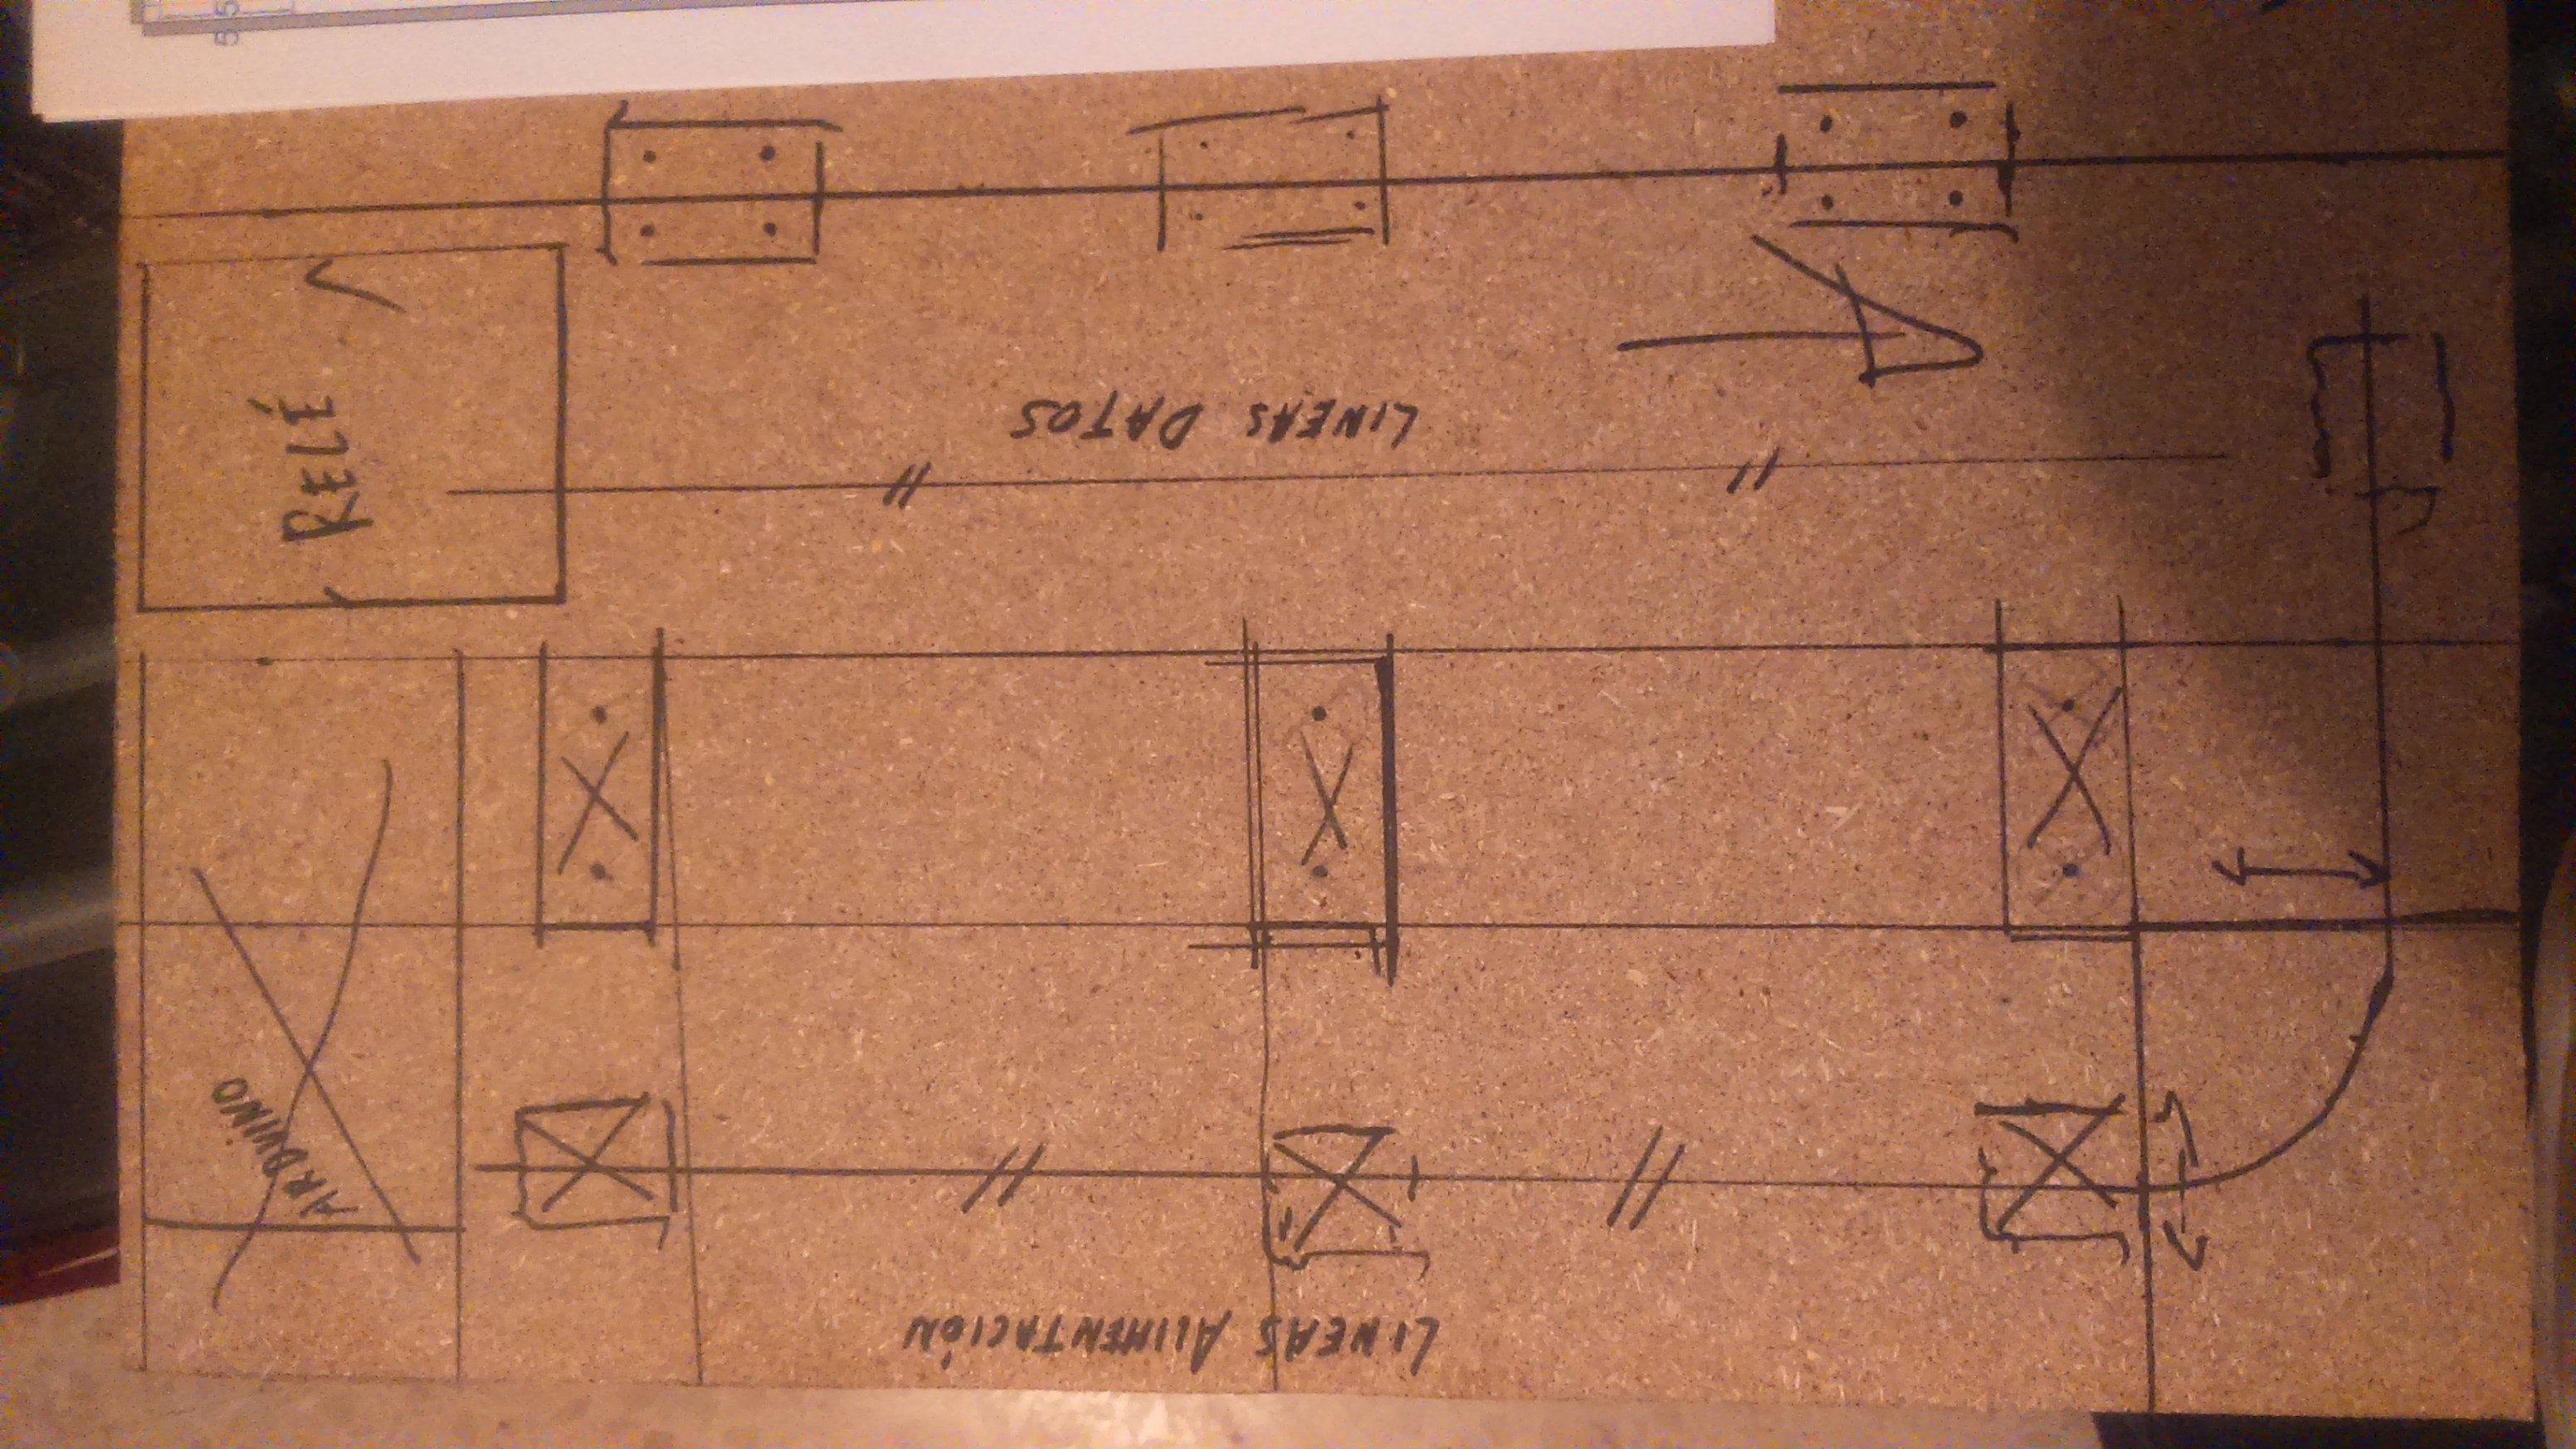 ARDUINO
RELÉ
LINEAS ALIMENTACIÓN
LINEAS DATOS